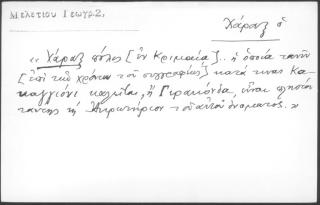 Μελετίου Γεωγρ. 2,
Χάραξ ὁ
« Χάραξ πόλις [ἐν Κριμαίᾳ]... ἡ ὁποία τανῦν
[ἐπὶ τῶν χρόνων τοῦ συγγραφέως] κατά τινας Κα-
καγγιόνι καλεῖται, ἢ Γιρακόνδα, εἶναι πλησίον
ταύτης τῇ Ἀκρωτήριον τοῦ αὐτοῦ ὀνόματος. »